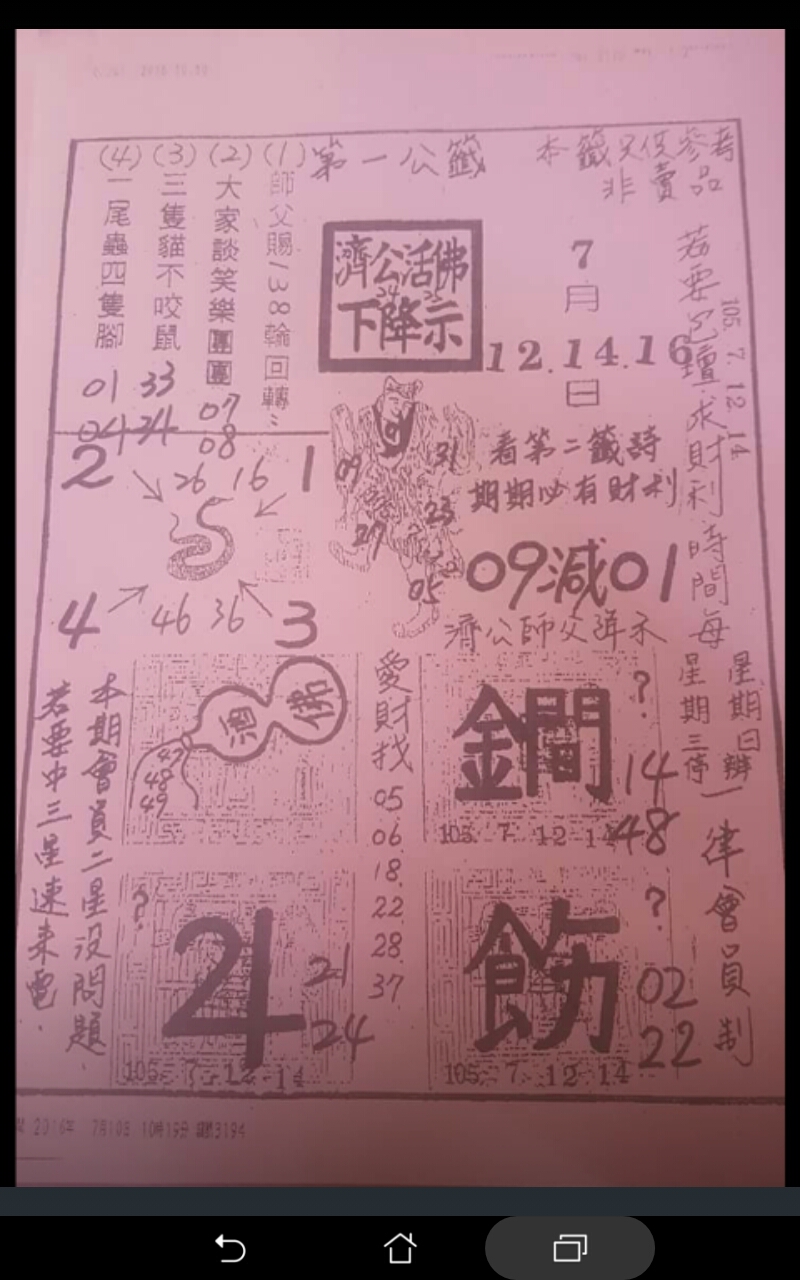 本籤只供參考
非賣品
第一公籤
(1) 師父賜138輪回轉
(2) 大家談笑樂團團
07
08
(3) 三隻貓不咬鼠
33
24
(4) 一尾蟲四隻腳
01
04
濟公活佛
下降示
7
月
12.14.16
日
105. 7. 12. 14
若要
壇求財利時間每
星期日辦
星期三停
一律會員制
看第二籤詩
期期必有財利
09減01
濟公師父降示
09
31
23
27
05
2
26
16
1
5
4
46
36
3
本期會員二星沒問題
若要中三星速來電
酒
佛
47
48
49
愛財找
05
06
18
22
28
37
?
14
48
105. 7 12 14
?
4
21
24
105. 7. 12. 14
?
02
22
105. 7 12 14
2016年 7月10日 10時19分 3194